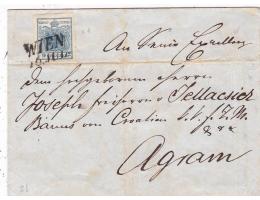 WIEN
An Seine Excellenz
Dem hochgebornen Herrn
Joseph Freiherrn v Jellacsics
Banus von Croatien k. k. F. Z. M.
Agram